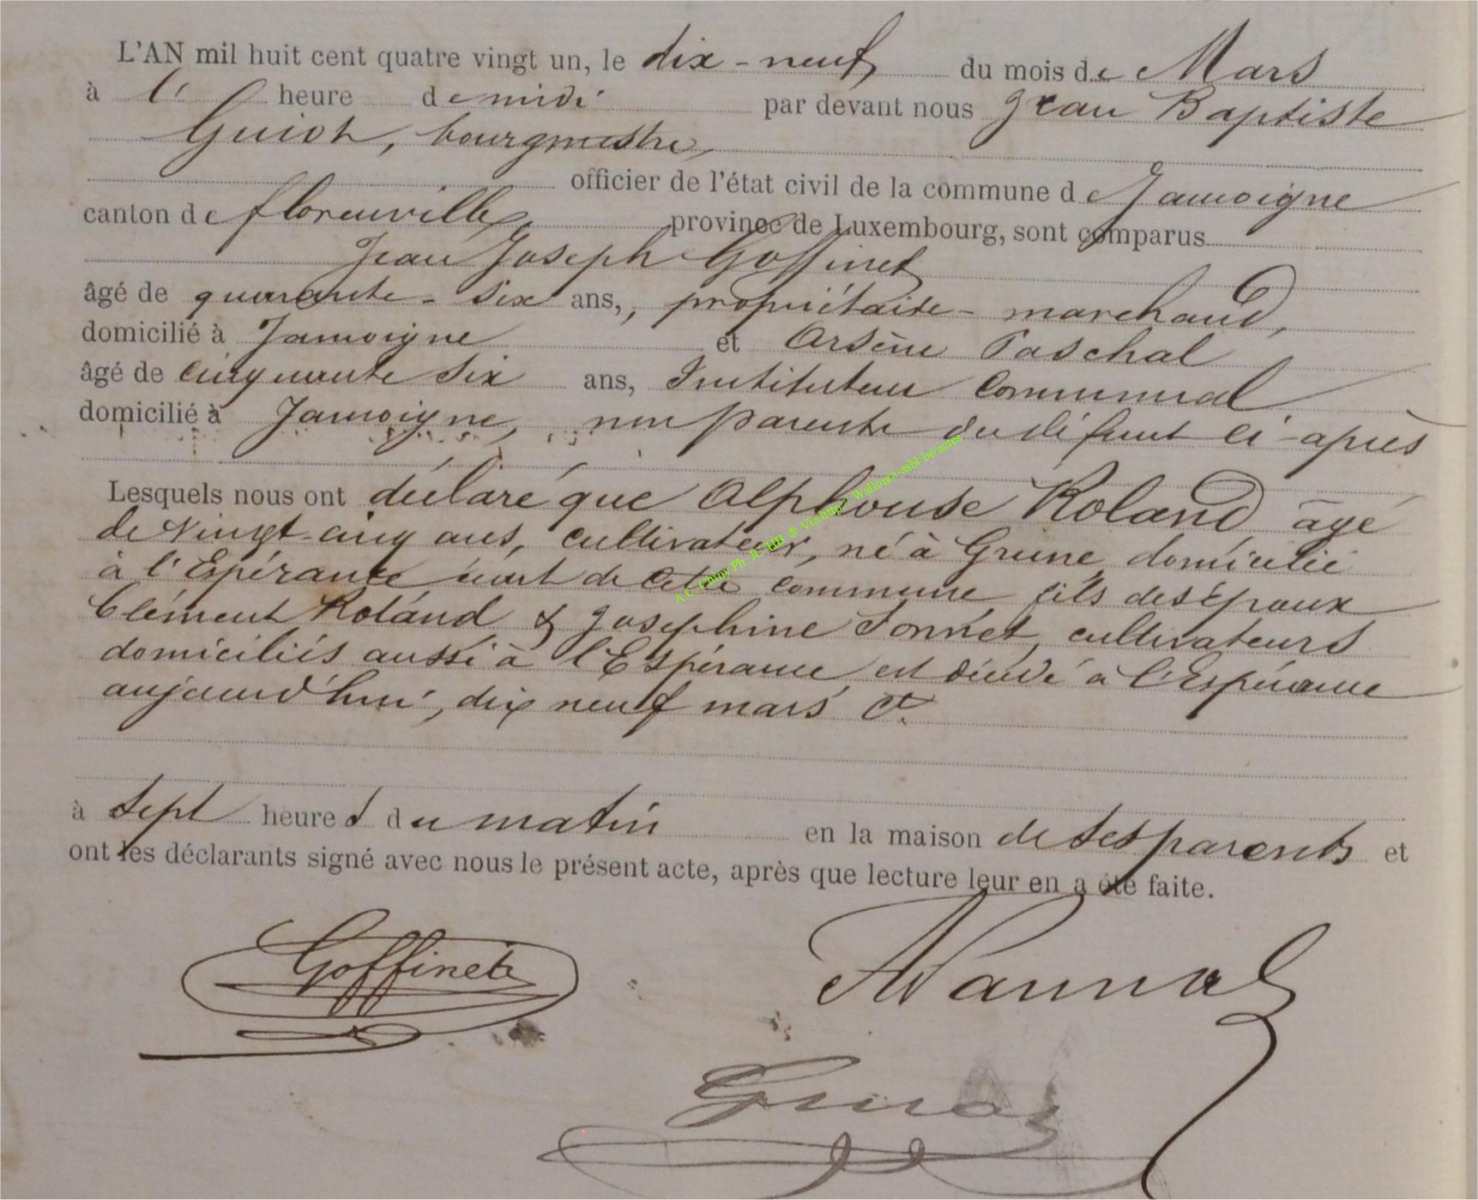 L'AN mil huit cent quatre vingt un, le dix-neuf du mois de Mars
à l' heure de midi par devant nous Jean Baptiste
Guiot, bourgmestre,
officier de l'état civil de la commune de Jamoigne
canton de florenville, province de Luxembourg, sont comparus
Jean Joseph Goffinet
âgé de quarante-six ans, , propriétaire-marchand,
domicilié à Jamoigne et Arsène Paschal
âgé de cinquante six ans, Instituteur Communal
domicilié à Jamoigne, non parents du défunt ci-après
Lesquels nous ont déclaré que Alphonse Roland âgé
de vingt-cinq ans, cultivateur, né à Grune domicilié
à l'Espérance écart de cette commune, fils des époux
Clément Roland & Josephine Sonnet, cultivateurs
domiciliés aussi à l'Espérance, est décédé à l'Espérance
aujourd'hui, dix neuf mars ct.
à sept heures du matin en la maison de ses parents et
ont les déclarants signé avec nous le présent acte, après que lecture leur en a été faite.
Goffinet
Guiot